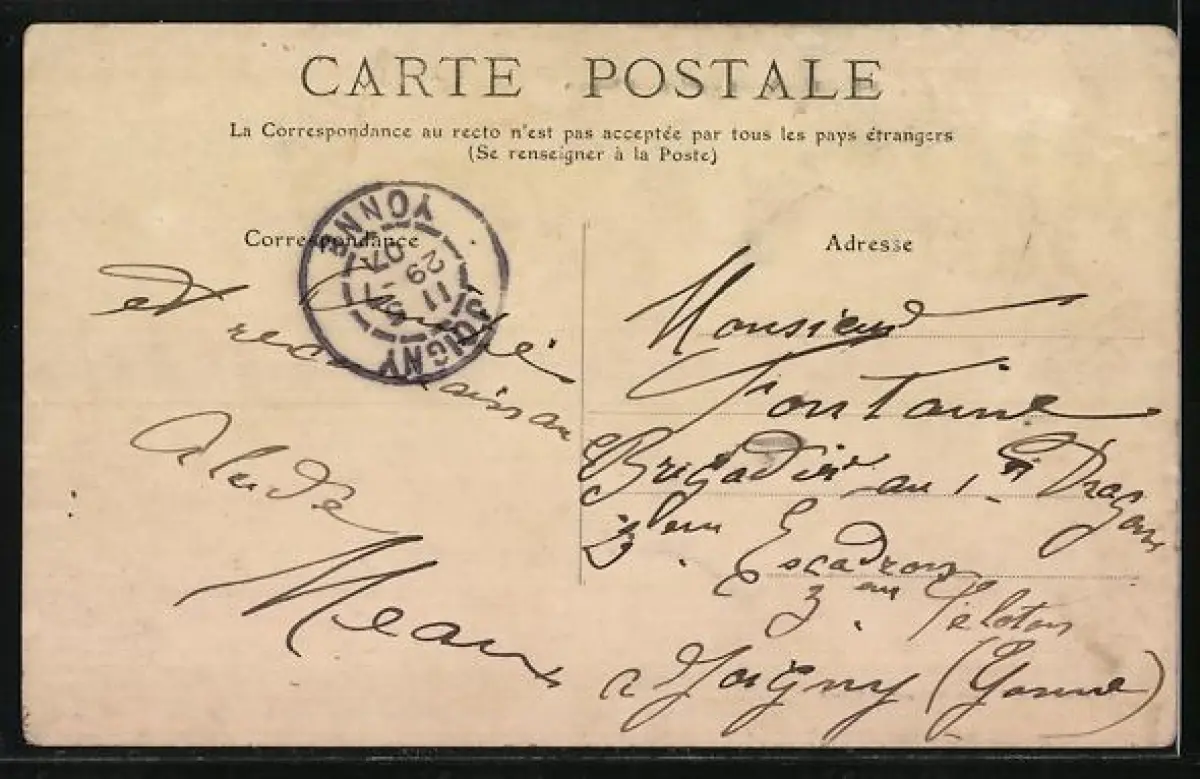 CARTE POSTALE
La Correspondance au recto n'est pas acceptée par tous les pays étrangers
(Se renseigner à la Poste)
Correspondance
et
Meaux
JOIGNY
11
29
07
YONNE
Adresse
Monsieur
Fontaine
Brigadier au 1er Dragons
3eme Escadron
3eme Peloton
a Joigny (Yonne)